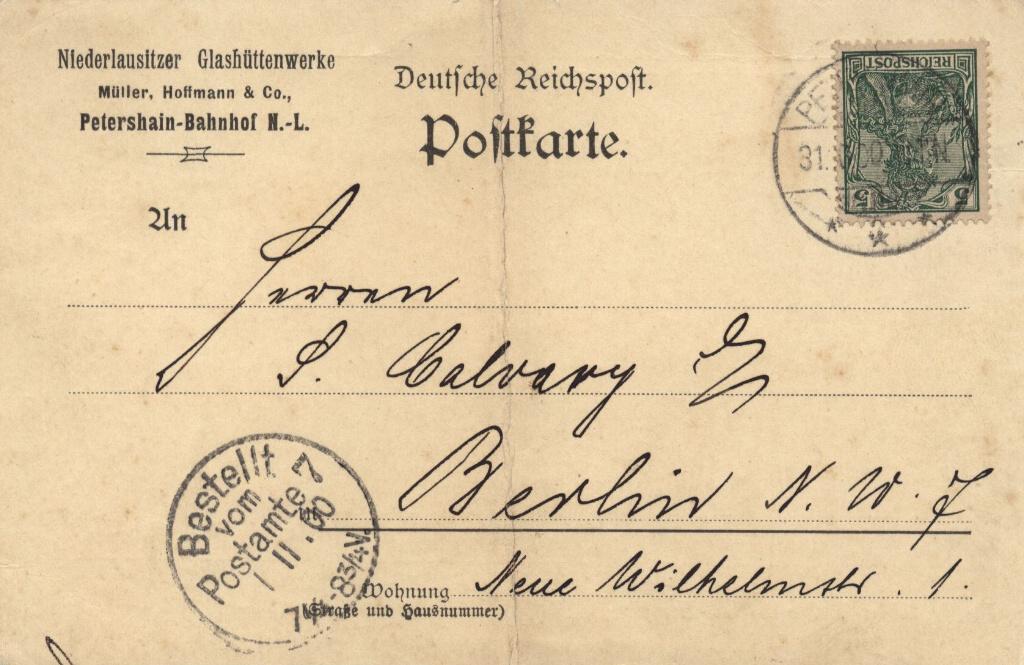 Niederlausitzer Glashüttenwerke
Müller, Hoffmann & Co.,
Petershain-Bahnhof N.-L.
Deutsche Reichspost.
Postkarte.
REICHSPOST
5 5
31.
An
Herren
S. Calvary
Berlin N. W. 7
Neue Wilhelmstr. 1.
Wohnung
(Straße und Hausnummer)
Bestellt
vom
Postamte 7
1 11.00
7¼-8¾V.